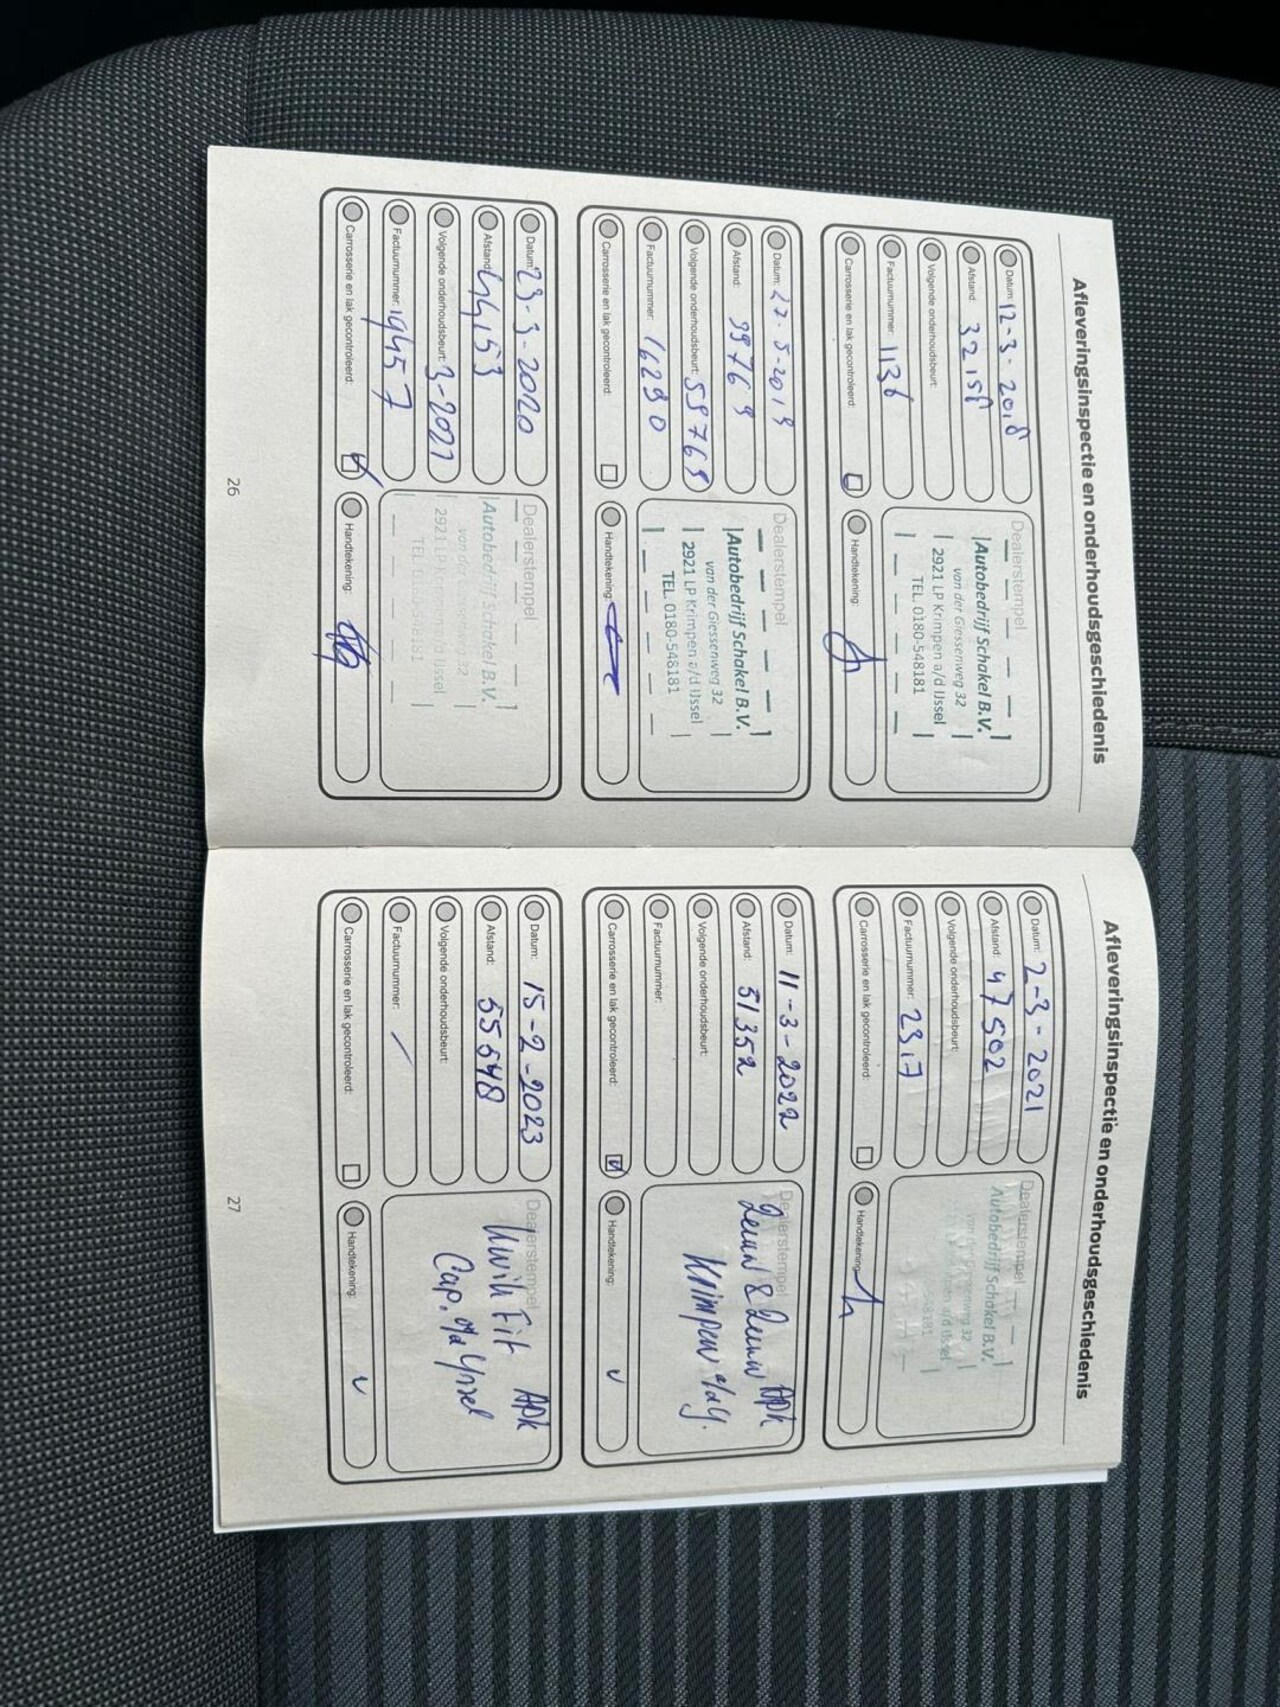 Afleveringsinspectie en onderhoudsgeschiedenis
Datum: 12-3-2018
Afstand: 32158
Volgende onderhoudsbeurt:
Factuurnummer: 1136
Carrosserie en lak gecontroleerd:
Dealerstempel
Autobedrijf Schakel B.V.
van der Giessenweg 32
2921 LP Krimpen a/d IJssel
TEL. 0180-548181
Handtekening:
Datum: 27-5-2019
Afstand: 39769
Volgende onderhoudsbeurt: 59769
Factuurnummer: 16290
Carrosserie en lak gecontroleerd:
Dealerstempel
Autobedrijf Schakel B.V.
van der Giessenweg 32
2921 LP Krimpen a/d IJssel
TEL. 0180-548181
Handtekening:
Datum: 23-3-2020
Afstand: 44153
Volgende onderhoudsbeurt: 3-2021
Factuurnummer: 19457
Carrosserie en lak gecontroleerd:
Dealerstempel
Autobedrijf Schakel B.V.
van der Giessenweg 32
2921 LP Krimpen a/d IJssel
TEL. 0180-548181
Handtekening:
26
Afleveringsinspectie en onderhoudsgeschiedenis
Datum: 2-3-2021
Afstand: 47502
Volgende onderhoudsbeurt:
Factuurnummer:
Carrosserie en lak gecontroleerd:
Dealerstempel
Autobedrijf Schakel B.V.
van der Giessenweg 32
a/d IJssel
548181
Handtekening:
Datum: 11-3-2022
Afstand: 51352
Volgende onderhoudsbeurt:
Factuurnummer:
Carrosserie en lak gecontroleerd:
Dealerstempel
&
APK
Krimpen a/d Y.
Handtekening:
Datum: 15-2-2023
Afstand: 55648
Volgende onderhoudsbeurt:
Factuurnummer: /
Carrosserie en lak gecontroleerd:
Dealerstempel
Kwik Fit APK
Cap. a/d Yssel
Handtekening:
27